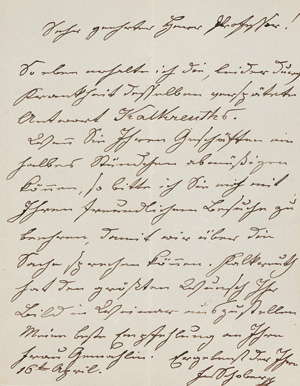 Sehr geehrter Herr Professor!
So eben erhalte ich die, leider durch
Krankheit desselben verspätete
Antwort Kalkreuths.
Wenn Sie Ihren Geschäften ein
halbes Stündchen abmüßigen
können, so bitte ich Sie mich mit
Ihrem freundlichen Besuche zu
beehren, damit wir über die
Sache sprechen können. Kalkreuth
hat den größten Wunsch Ihr
Bild in Weimar auszustellen
Meine beste Empfehlung an Ihre
Frau Gemahlin. Ergebenst der Ihre
16ten April.